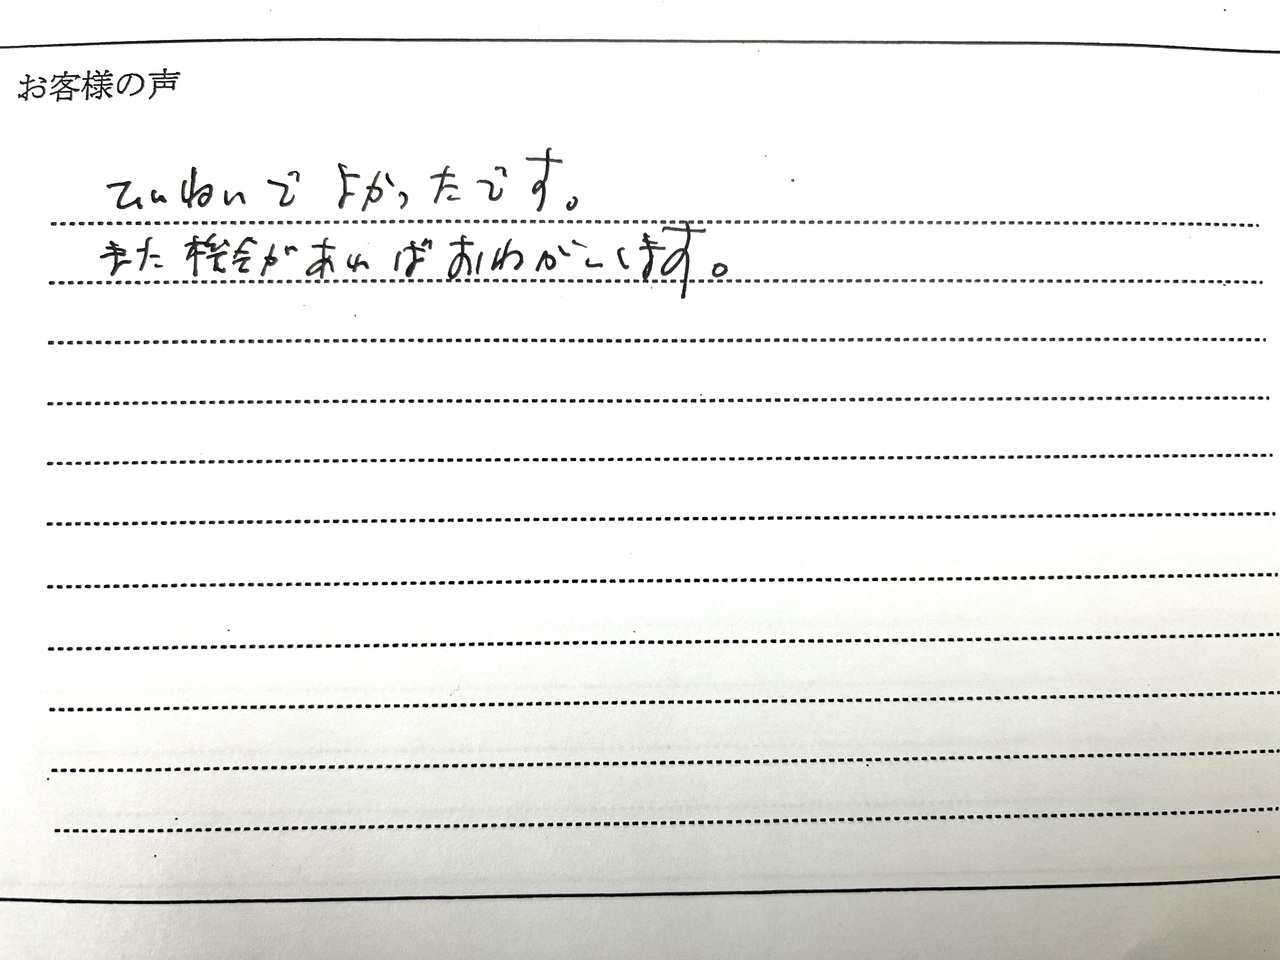 お客様の声
ていねいで よかったです。
また機会があればおねがいします。